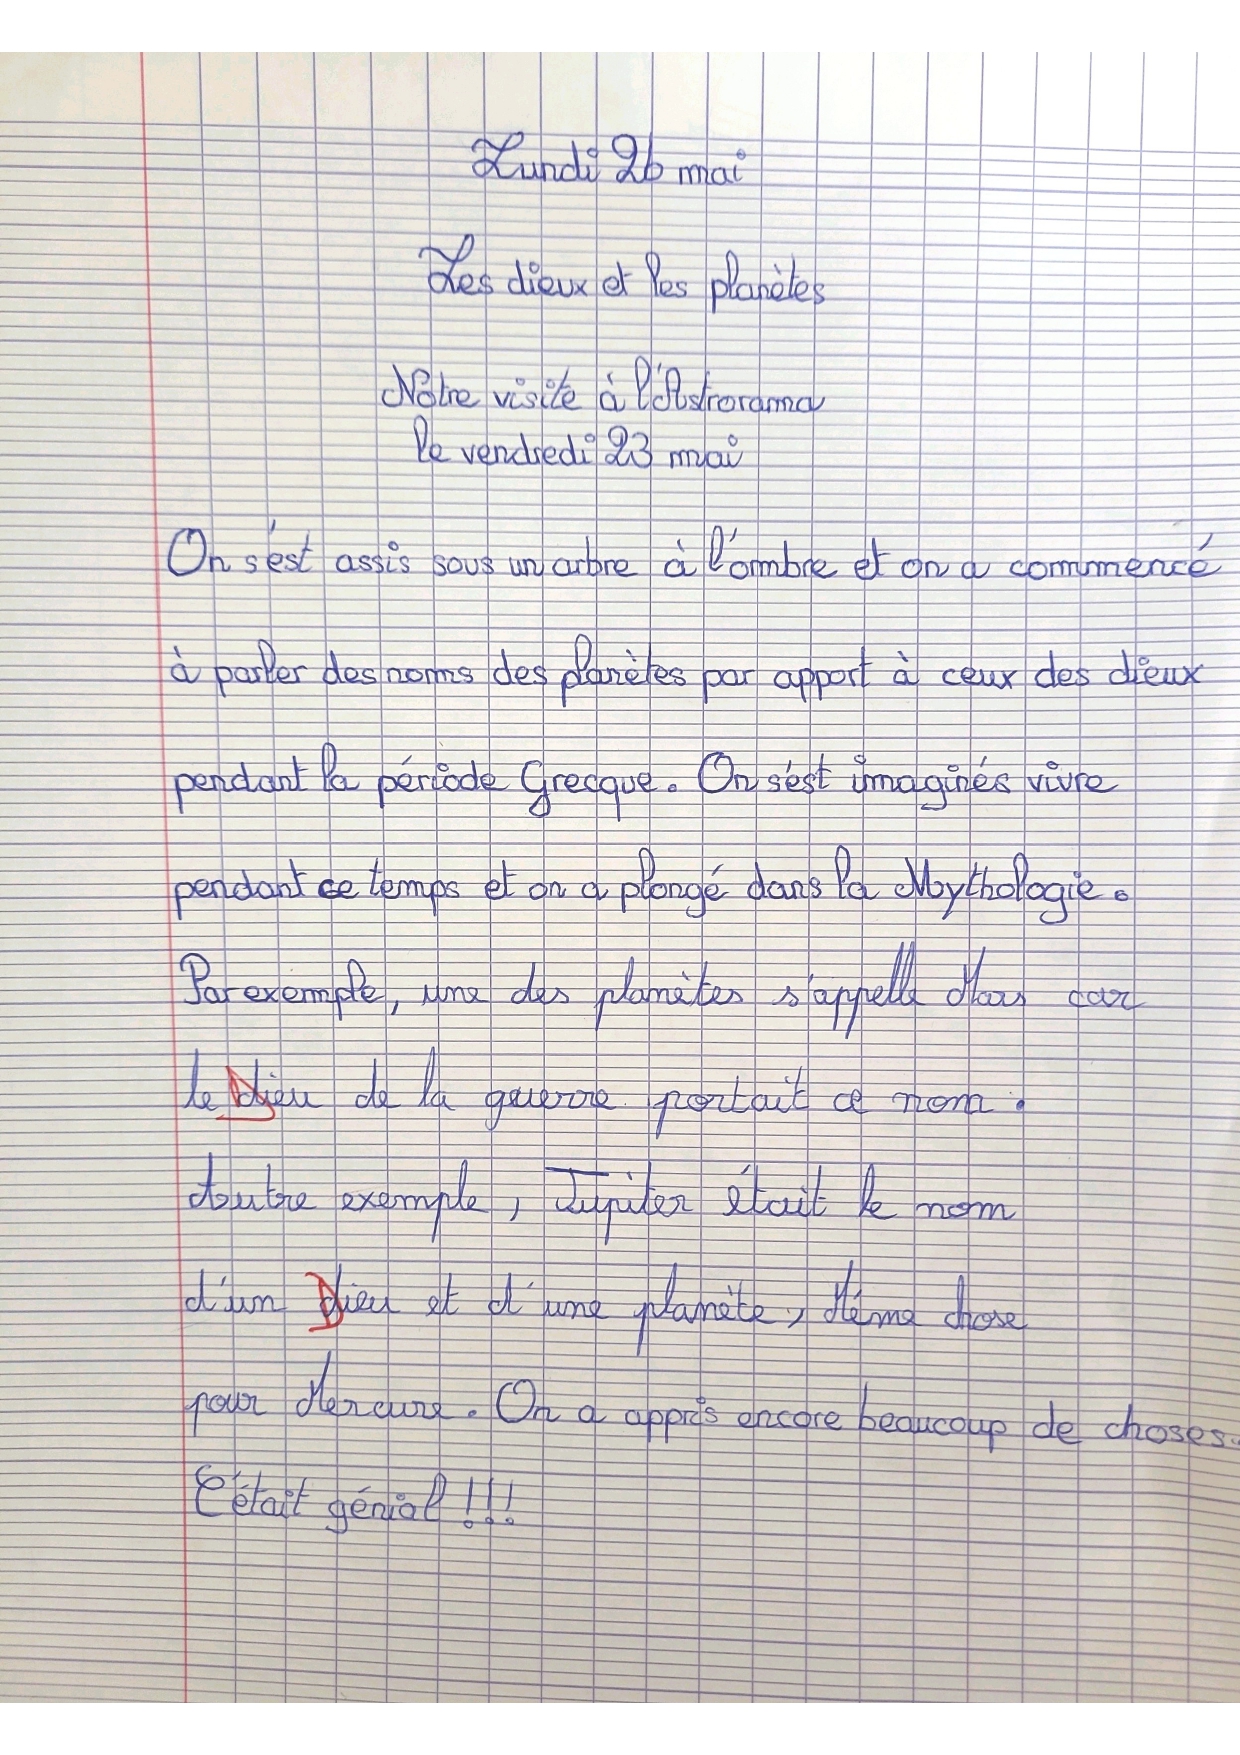 Lundi 26 mai
Les dieux et les planètes
Notre visite à l'Astrorama
le vendredi 23 mai
On s'est assis sous un arbre à l'ombre et on a commencé
à parler des noms des planètes par apport à ceux des dieux
pendant la période Grecque. On s'est imaginés vivre
pendant ce temps et on a plongé dans la Mythologie.
Par exemple, une des planètes s'appelle Mars car
le Dieu de la guerre portait ce nom.
Autre exemple, Jupiter était le nom
d'un Dieu et d'une planète, Même chose
pour Mercure. On a appris encore beaucoup de choses.
C'était génial !!!